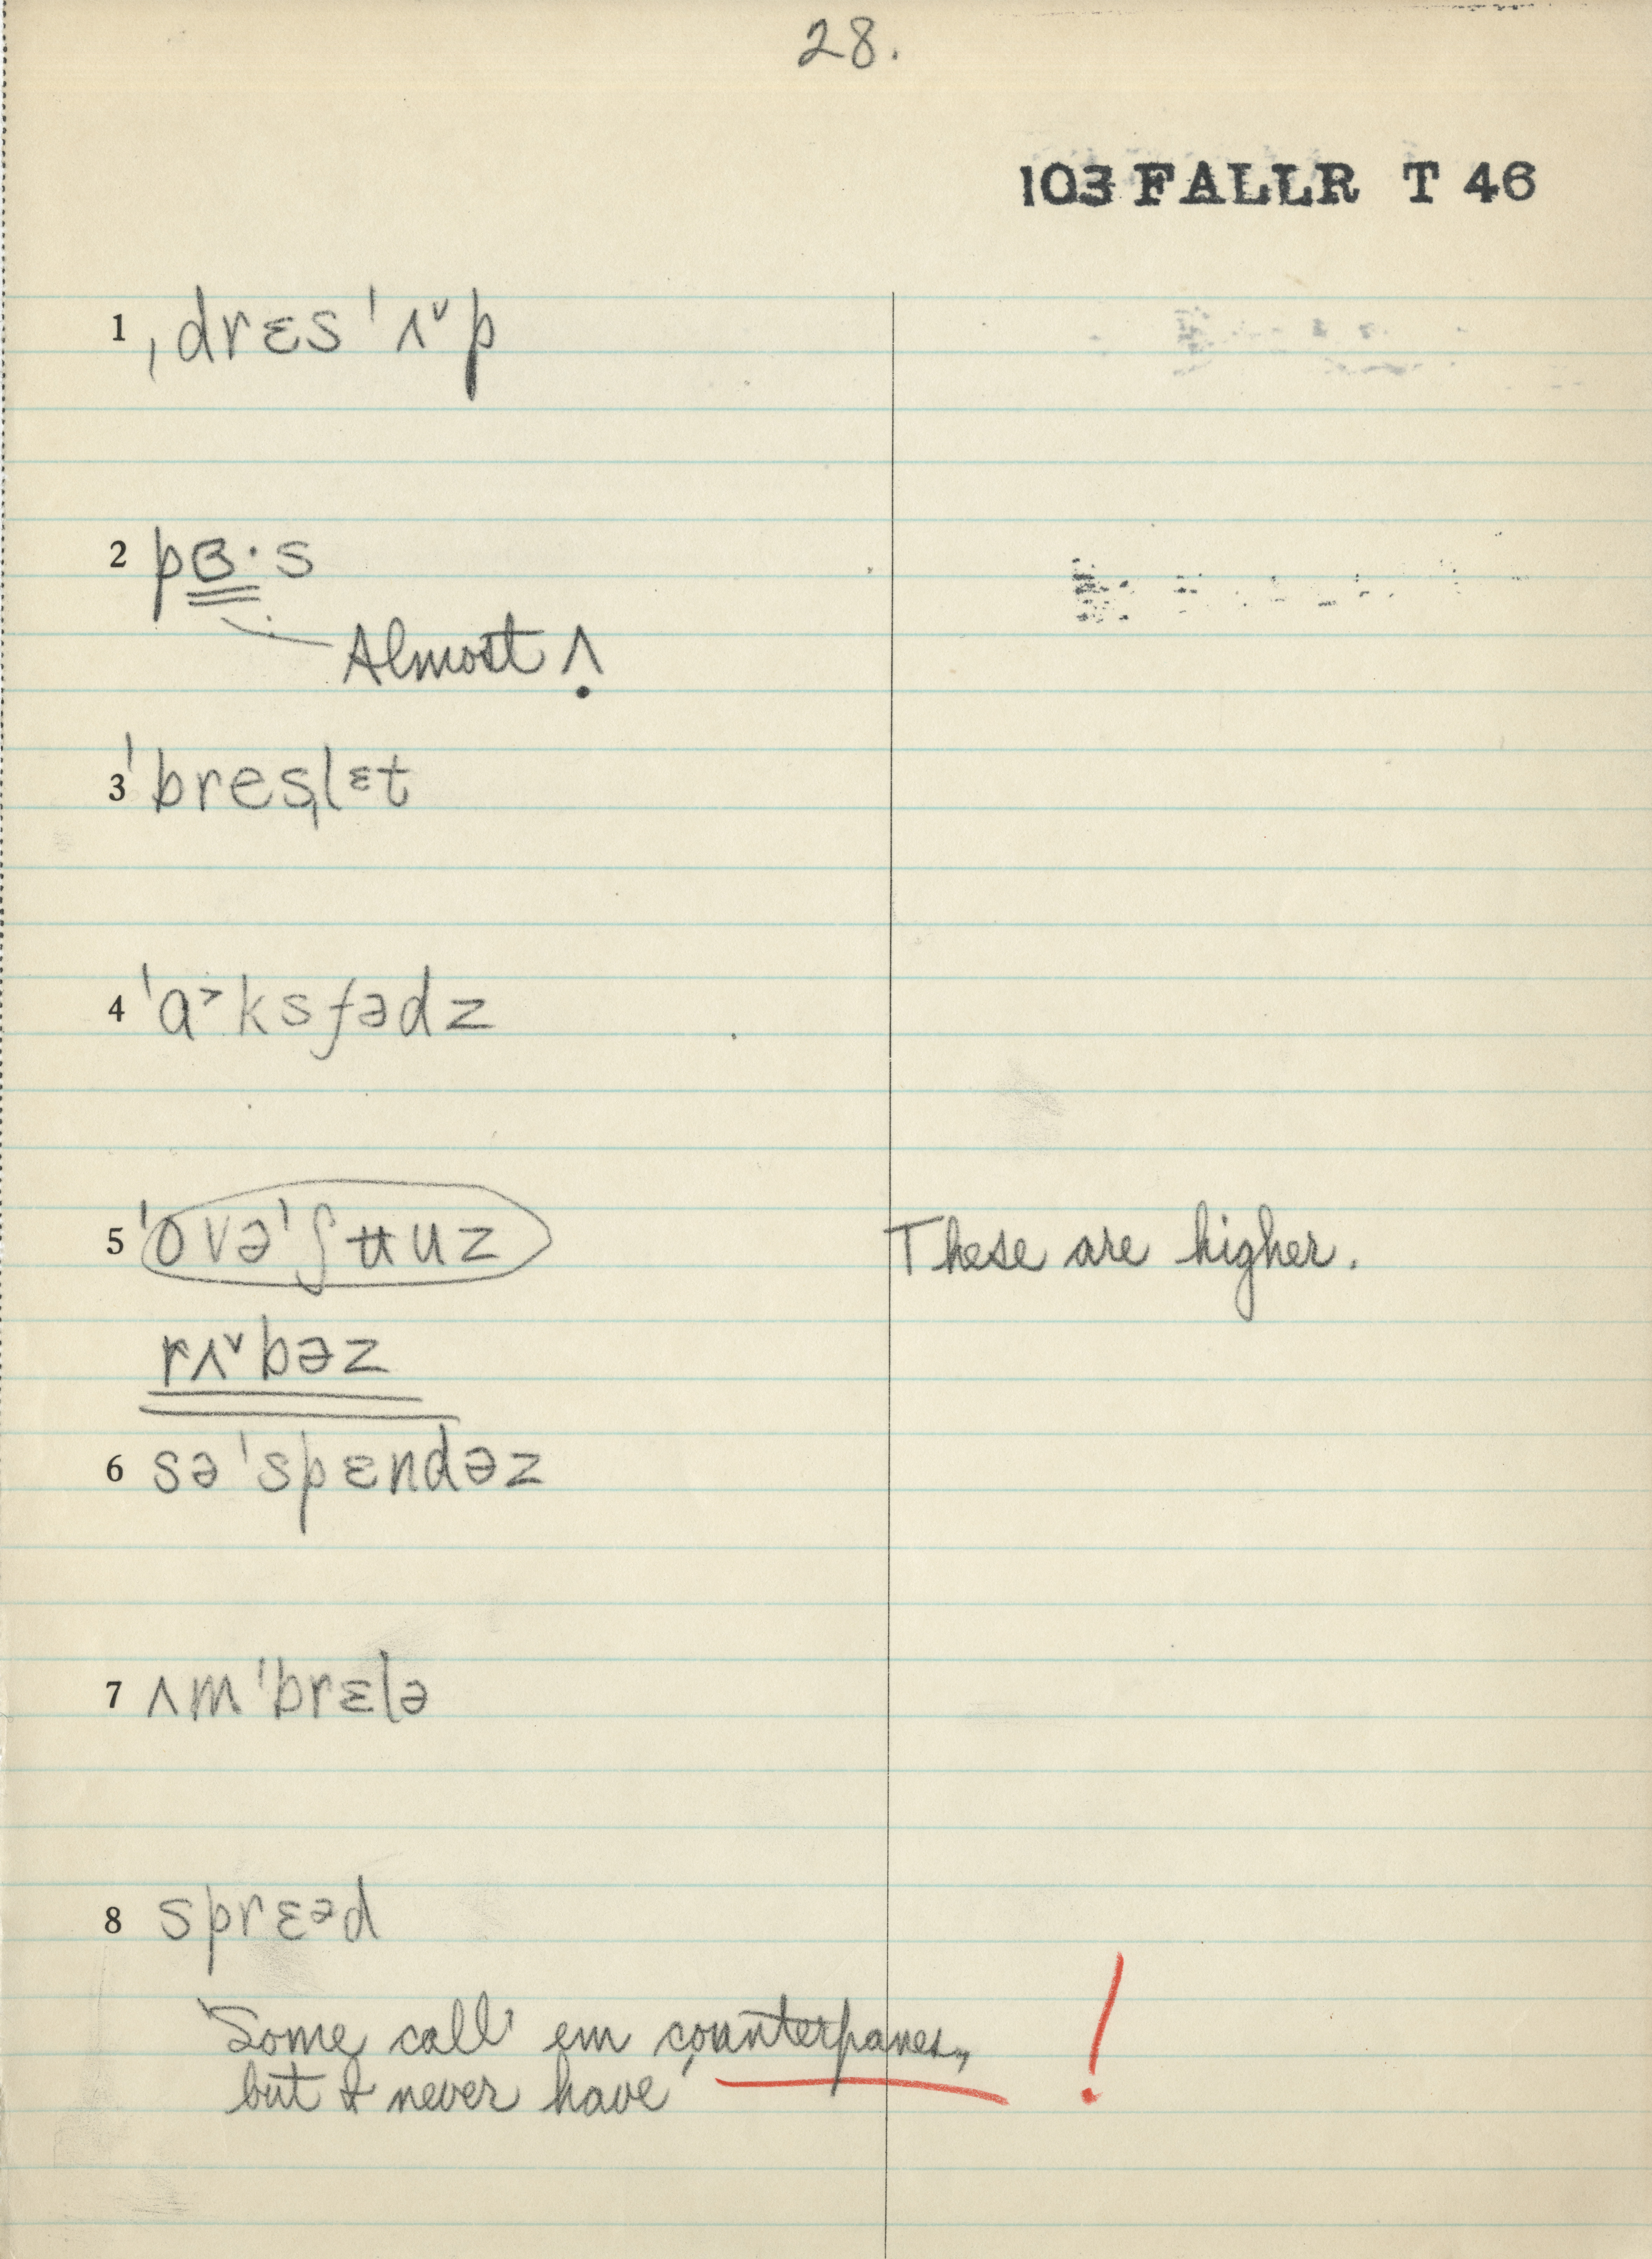 28.
103 FALLR T 46
1 ˌdrɛs ˈʌ˅p
2 pɞ·s
Almost ʌ
3 ˈbresˌlᵋt
4 ˈɑ˃ksfədz
5 ˈovəˈʃʉuz These are higher.
rʌ˅bəz
6 səˈspɛndəz
7 ʌmˈbrɛlə
8 sprɛᵊd
"Some call 'em counterpanes,
but I never have" !